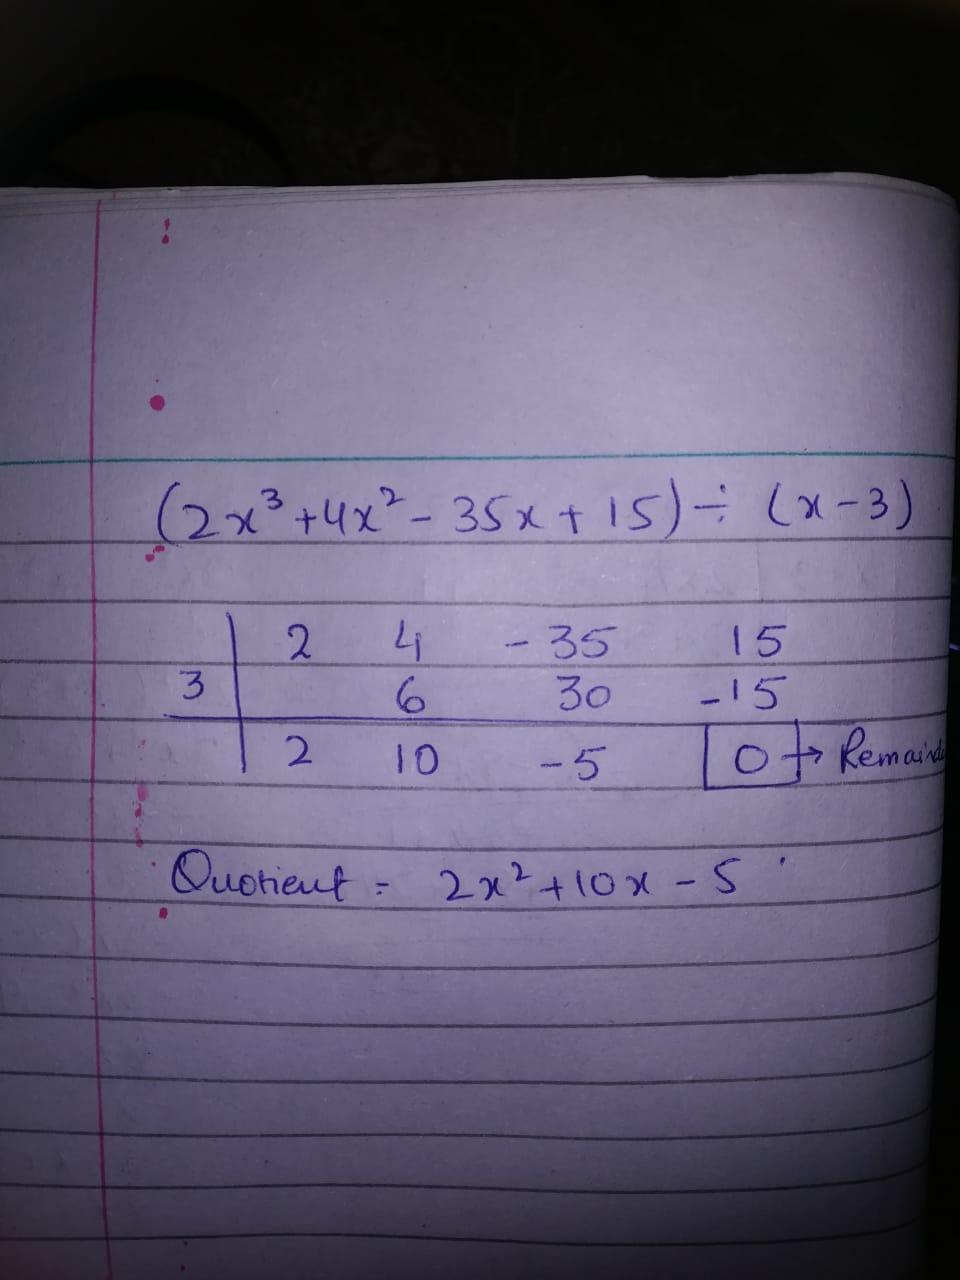 (2x³+4x²-35x+15)÷(x-3)
2 4 -35 15
3 6 30 -15
2 10 -5 0 →
Quotient = 2x²+10x-5